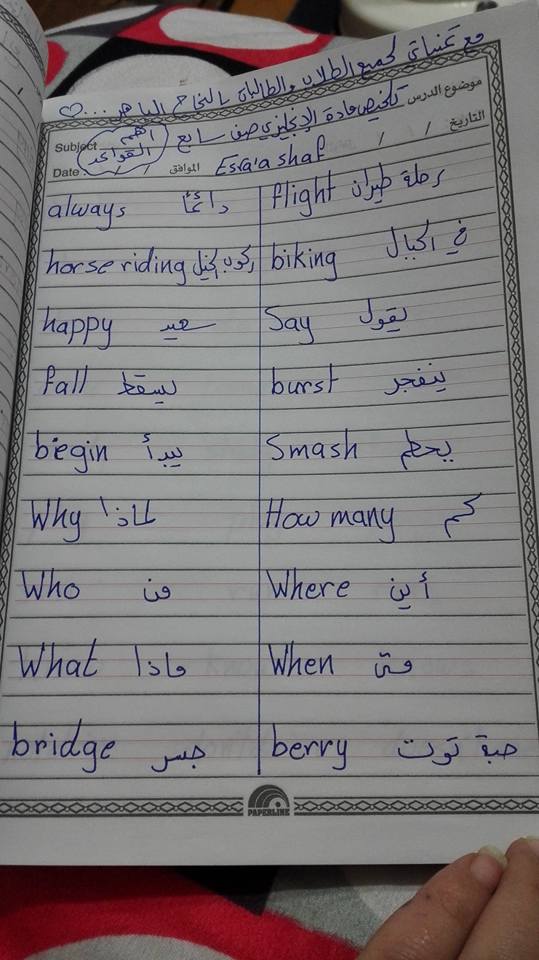 مع تمنياتي لجميع الطلاب والطالبات بالنجاح الباهر ...♡
موضوع الدرس تلخيص مادة الإنجليزي صف سابع
Subject أهم القواعد
التاريخ / /
Date / / الموافق Esra'a shaf
always دائمًا flight رحلة طيران
horse riding ركوب الخيل biking في الجبال
happy سعيد Say يقول
fall يسقط burst ينفجر
begin يبدأ Smash يحطم
Why لماذا How many كم
Who من Where أين
What ماذا When متى
bridge جسر berry حبة توت
PAPERLINE